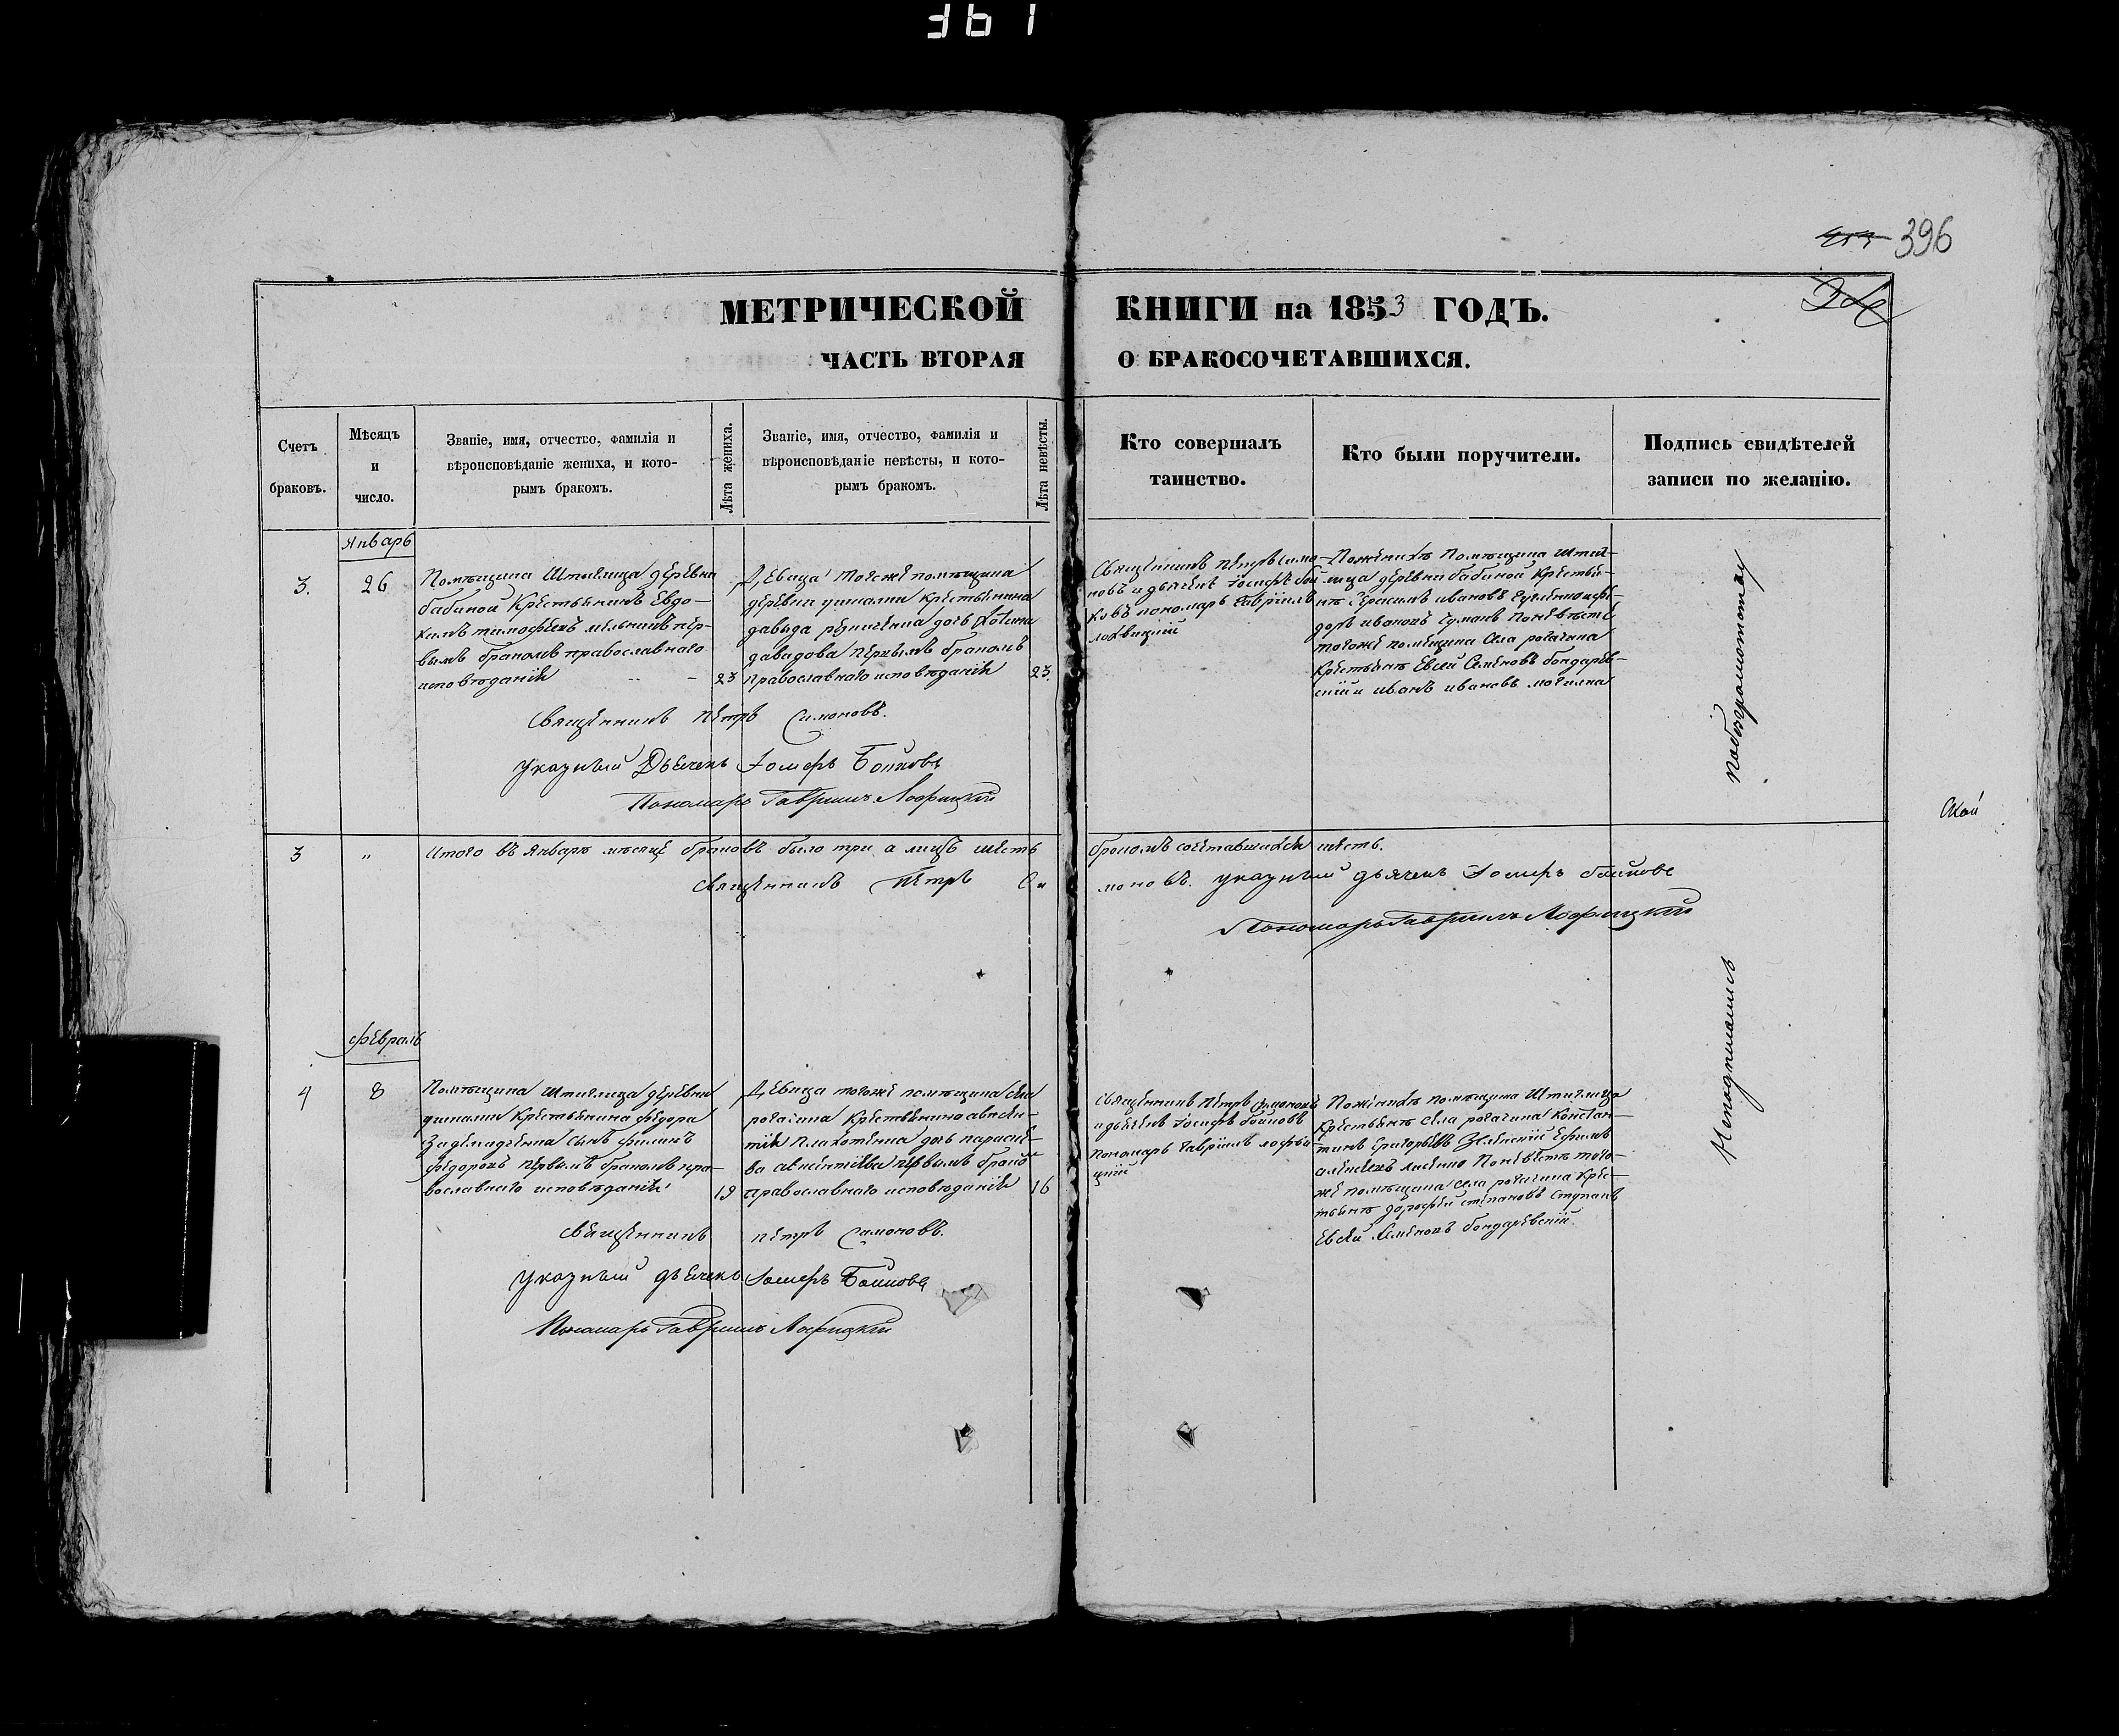 361
396
МЕТРИЧЕСКОЙ КНИГИ на 1853 ГОДЪ.
ЧАСТЬ ВТОРАЯ О БРАКОСОЧЕТАВШИХСЯ.
Счетъ браковъ.
Мѣсяцъ и число.
Званіе, имя, отчество, фамилія и
вѣроисповѣданіе жениха, и кото-
рымъ бракомъ.
Лѣта жениха.
Званіе, имя, отчество, фамилія и
вѣроисповѣданіе невѣсты, и кото-
рымъ бракомъ.
Лѣта невѣсты.
Кто совершалъ
таинство.
Кто были поручители.
Подпись свидѣтелей
записи по желанію.
Январь
3.
26
Помѣщика Штиглица деревни
бабиной Крестьянинъ Евдо-
кимъ тимофеевъ мельникъ пер-
вымъ бракомъ православнаго
исповѣданія
23
Девица тогоже помѣщика
деревни крестьянина
давида дочь
давидова первымъ бракомъ
православнаго исповѣданія
23.
Священникъ петръ симо-
новъ и дьячекъ Іосифъ бой-
ковъ пономарь Гавріилъ
Пожениху Помѣщика Штиг-
лица деревни бабиной Крестья-
не Герасимъ ивановъ
ивановъ Поневѣсте
тогоже помѣщика Села рогачика
Крестьяне Евсей Семеновъ бондарев-
скій и иванъ ивановъ могилка
Священникъ петръ Симоновъ.
указный Дьячекъ Іосифъ Бойковъ
Пономарь Гавриилъ Лофицкий
Скои
3
"
Итого въ Январѣ месяце браковъ было три а лицъ шесть
бракомъ сочетавшихся шесть.
Священникъ Петръ Си
моновъ. указный дьячекъ Іосифъ бойковъ
Пономарь Гавриилъ Лофицкий
Неподписались
Февраль
4
8
Помѣщика Штиглица деревни
Крестьянина федора
сынъ филипъ
федоровъ первымъ бракомъ пра-
вославнаго исповѣданія
19
Девица тогоже помѣщика села
рогачика Крестьянина авксен-
тія дочь параске-
ва авксентіева первымъ брако
православнаго исповѣданія
16
Священникъ Петръ Симоновъ
и дьячекъ Іосифъ бойковъ
пономарь Гавріилъ лофи-
цкій
Пожениху помѣщика Штиглица
Крестьяне села рогачика Констан-
тинъ Григорьевъ Ефимъ
Поневѣсте того-
же помѣщика села рогачика Крес-
тьяне дорофей степановъ Ступакъ
Евсей Семеновъ бондаревскій.
Священникъ петръ Симоновъ.
указный дьячекъ Іосифъ Бойковъ
Пономарь Гавриилъ Лофицкий